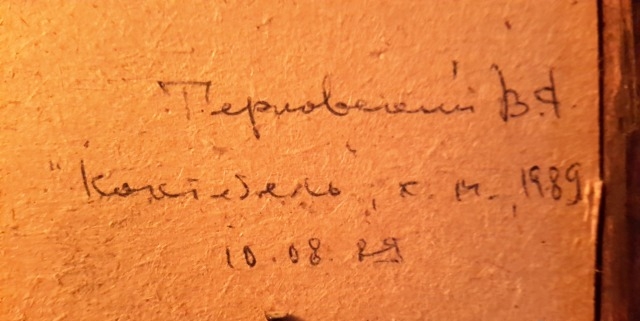 Терновский В.Я.
"Коктебель", х. м., 1989
10.08.89